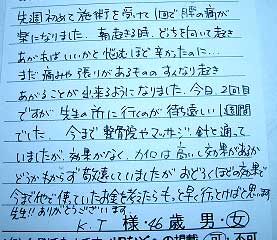 先週初めて施術を受けて1回で腰の痛が
楽になりました。朝起きる時、どちを向いて起き
あがればいいかと悩むほど辛かったのに…
まだ痛みや張りがあるもののすんなり起き
あがることが出来るようになりました。今日2回目
ですが先生の所に行くのが待ち遠しい1週間
でした。今まで整骨院やマッサージ、針と通って
いましたが、効果がなく、カイロは高いし効果があるか
どうかわからず敬遠していましたがおどろくほどの効果で
今まで他で使っていたお金を考えたらもっと早く行っとけばと思います。
先生!!ありがとうございます。
K.T 様・46歳 男・女
の掲載 可・不可